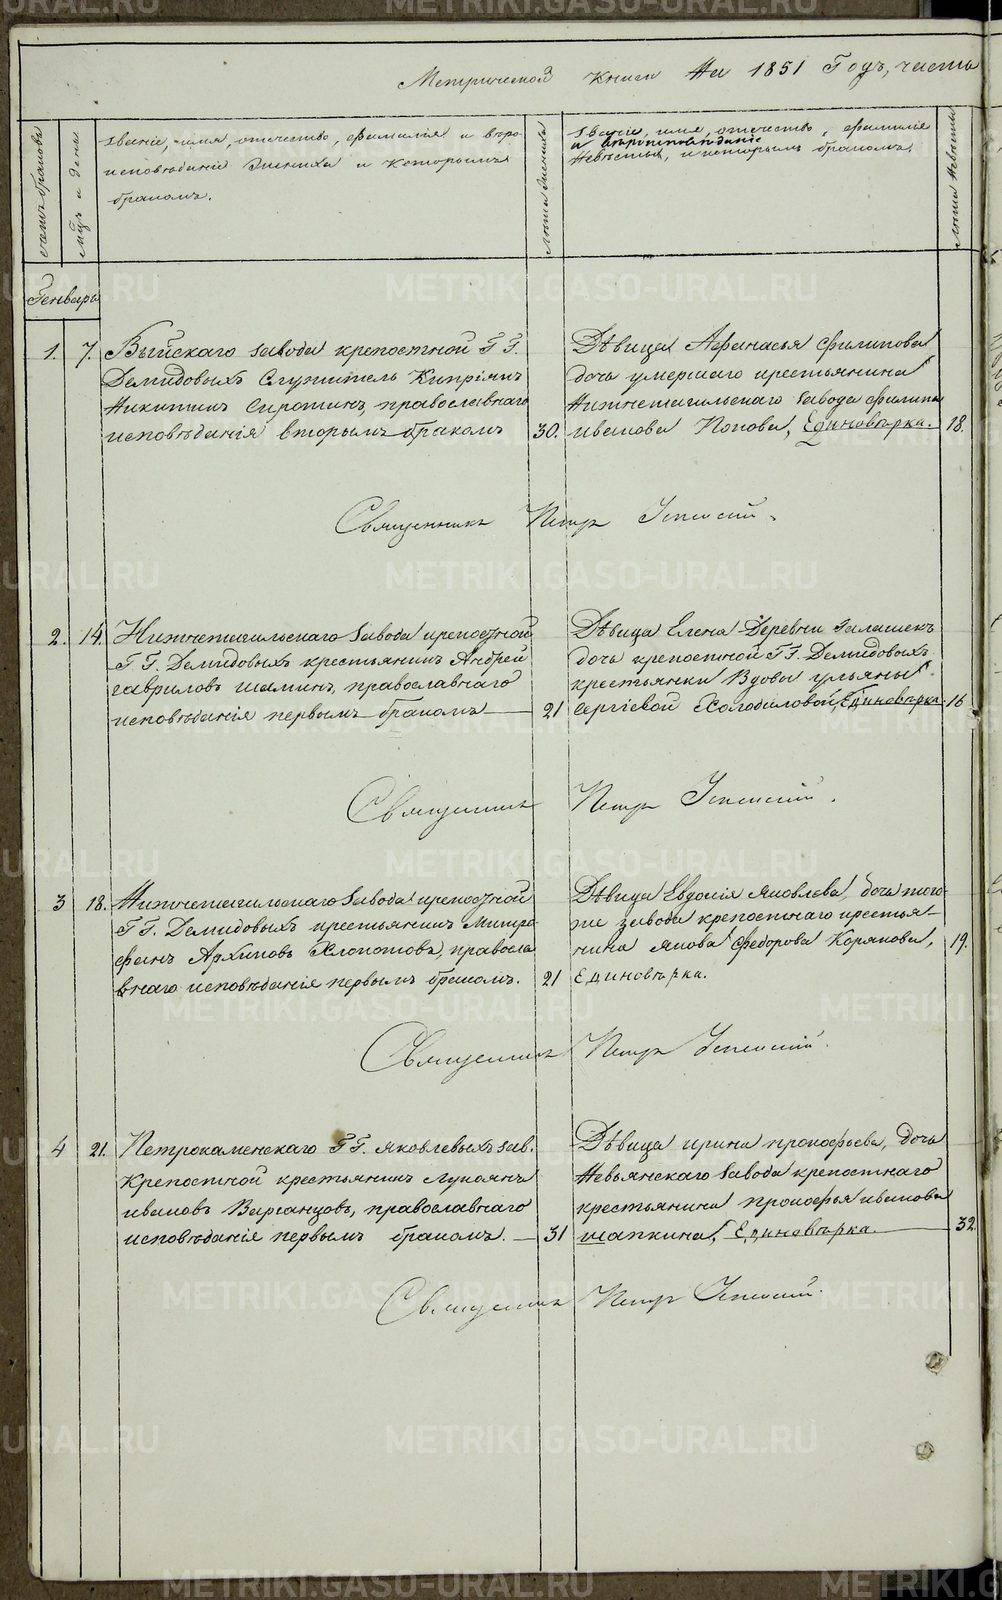 Метрической книги На 1851 Годъ, часть
счетъ браковъ
мцъ и день
званіе, имя, отчество, фамилія и вѣро-
исповѣданіе Жениха и которымъ
бракомъ.
лѣта жениха
званіе, имя, отчество, фамилія
и вѣроисповѣданіе
Невѣсты, и которымъ бракомъ,
лѣта Невѣсты
Генварь
1. 7. Выйскаго завода крепостной Г.Г.
Демидовыхъ Служитель Кипріянъ
Никитинъ Сиротинъ, православнаго
исповѣданія вторымъ бракомъ 30.
Дѣвица Афанасья Филипова
дочь умершаго крестьянина
Нижнетагильскаго завода Филипа
иванова Попова, Единовѣрка. 18.
Священникъ Петръ Успенскій.
2. 14. Нижнетагильскаго завода крепостной
Г.Г. Демидовыхъ крестьянинъ Андрей
гавриловъ шаминъ, православнаго
исповѣданія первымъ бракомъ 21
Дѣвица Елена Деревни Галашекъ
дочь крепостной Г.Г. Демидовыхъ
крестьянки Вдовы ульяны
Сергіевой Холодиловой, Единовѣрка 16
Священникъ Петръ Успенскій.
3 18. Нижнетагильскаго завода крепостной
Г.Г. Демидовыхъ крестьянинъ Митро-
фанъ Архиповъ Хлопотовъ, правосла
внаго исповѣданія первымъ бракомъ. 21
Дѣвица Евдокія Яковлева, дочь того-
же завода крепостнаго крестья-
нина Якова Федорова Корякова, 19.
Единовѣрка.
Священникъ Петръ Успенскій.
4 21. Петрокаменскаго Г.Г. Яковлевыхъ зав.
Крепостной крестьянинъ Лукоянъ
ивановъ Варганцовъ, православнаго
исповѣданія первымъ бракомъ. 31
Дѣвица ирина прокофьева, дочь
Невьянскаго завода крепостнаго
крестьянина прокофья иванова
шапкина, Единовѣрка. 32.
Священникъ Петръ Успенскій.
METRIKI.GASO-URAL.RU